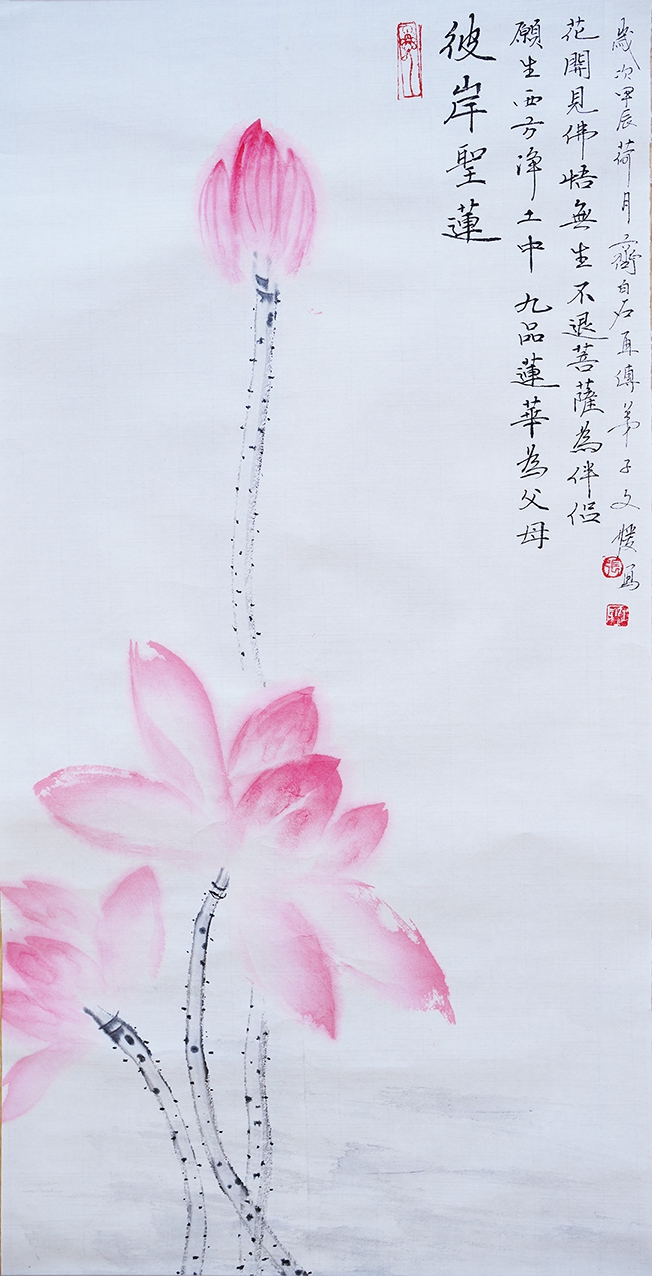 彼岸聖蓮
願生西方淨土中 九品蓮華為父母
花開見佛悟無生不退菩薩為伴侶
歲次甲辰荷月 齊白石再傳弟子文 寫
張